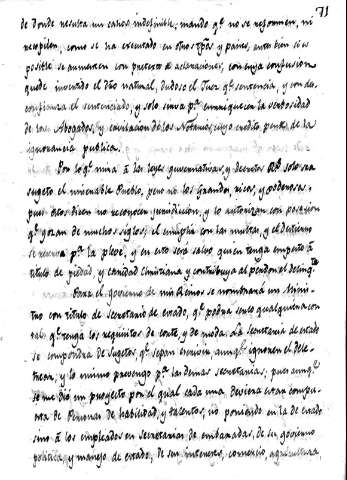 71
de donde resulta un caos indefinible; mando qe. no se reformen, ni
recopilen, como se ha executado en otros tpõs y paises, antes bien si es
posible se aumenten con pretexto de aclaraciones, con cuya confusion
quede invertido el dro natural, dudoso el Juez qe. sentencia, y con des-
confianza el sentenciado, y solo sirva pa. enriquecer la verbosidad
de los Abogados, y cavilacion de los Notarios, cuyo credito pende de la
ignorancia publica.
Por lo qe. mira à las leyes gubernativas, y decretos Rs. solo sea
sugeto el miserable Pueblo, pero no los Grandes, ricos, y poderosos,
pues estos dicen no reconocen jurisdiccion, y lo autorizan con posesion
qe. gozan de muchos siglos; el cumplir con las multas, y el destierro
se reserva pa. la pleve, y en esto será salvo quien tenga empeño à
titulo de piedad, y caridad christiana y contribuya al perdon el delinqte.
Para el govierno de mis Reinos se nombrará un Minis-
tro con titulo de Secretario de estado, qe. podrá serlo qualquiera con
tal qe. tenga los requisitos de corte, y de moda. La Secretaria de estado
se compondra de Sugetos, qe. sepan escrivir, aunqe. ignoren el dele-
trear, y lo mismo prevengo pa. las demas secretarias, pues aunqe.
se me dió un proyecto por el qual cada una deviera estar compu-
esta de Personas de habilidad, y talentos, no poniendo en la de estado
sino à los empleados en Secretarias de embaxadas, de su govierno
politica, y manejo de estado, de sus intereses, comercio, agricultura,